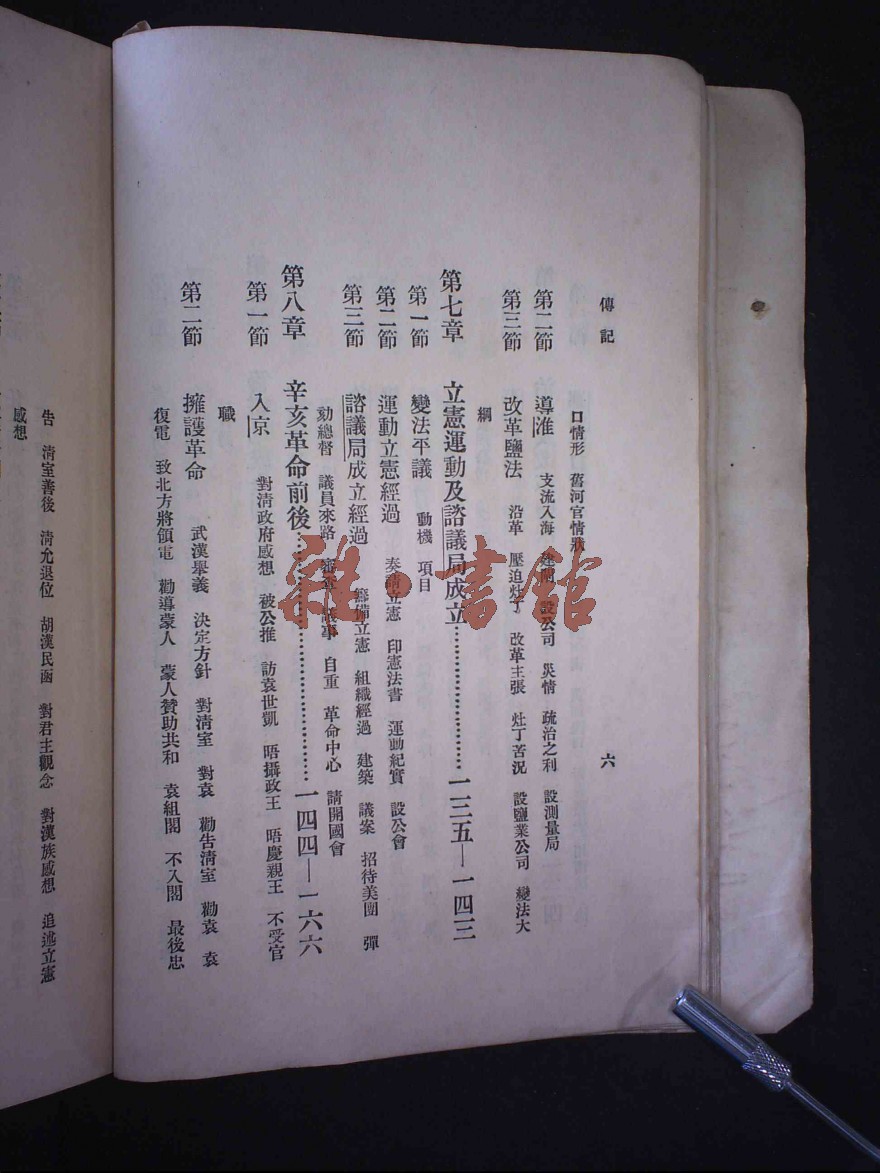 傳記
六
口情形 舊河官情狀
第二節 導淮 支流入海 建閘 設公司 災情 疏治之利 設測量局
第三節 改革鹽法 沿革 壓迫灶丁 改革主張 灶丁苦況 設鹽業公司 變法大
綱
第七章 立憲運動及諮議局成立……………………一三五—一四三
第一節 變法平議 動機 項目
第二節 運動立憲經過 奏請立憲 印憲法書 運動紀實 設公會
第三節 諮議局成立經過 籌備立憲 組織經過 建築 議案 招待美團 彈
劾總督 議員來路 審查議事 自重 革命中心 請開國會
第八章 辛亥革命前後……………………………一四四—一六六
第一節 入京 對清政府感想 被公推 訪袁世凱 晤攝政王 晤慶親王 不受官
職
第二節 擁護革命 武漢舉義 決定方針 對清室 對袁 勸告清室 勸袁 袁
復電 致北方將領電 勸導蒙人 蒙人贊助共和 袁組閣 不入閣 最後忠
告 清室善後 清允退位 胡漢民函 對君主觀念 對漢族感想 追述立憲
感想
雜·書館